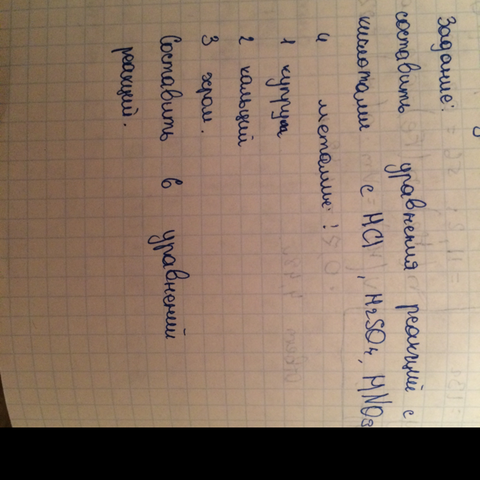 Задание:
составить уравнения реакций с
кислотами с HCl, H2SO4, HNO3
и металлы:
1 купрум
2 кальций
3 хром.
Составить в уравнений
реакций.